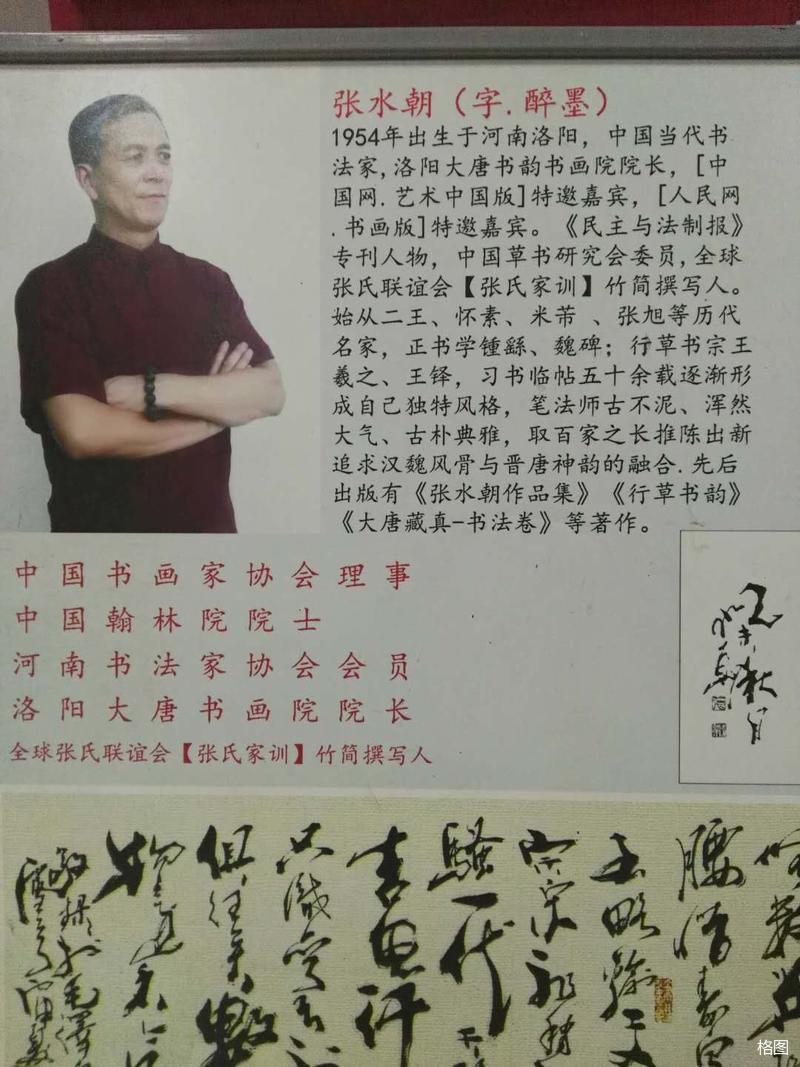 张水朝（字.醉墨）
1954年出生于河南洛阳，中国当代书
法家,洛阳大唐书韵书画院院长，[中
国网.艺术中国版]特邀嘉宾，[人民网
.书画版]特邀嘉宾。《民主与法制报》
专刊人物，中国草书研究会委员,全球
张氏联谊会【张氏家训】竹简撰写人。
始从二王、怀素、米芾 、张旭等历代
名家，正书学锺繇、魏碑；行草书宗王
羲之、王铎，习书临帖五十余载逐渐形
成自己独特风格，笔法师古不泥、浑然
大气、古朴典雅，取百家之长推陈出新
追求汉魏风骨与晋唐神韵的融合.先后
出版有《张水朝作品集》《行草书韵》
《大唐藏真-书法卷》等著作。
中国书画家协会理事
中国翰林院院士
河南书法家协会会员
洛阳大唐书画院院长
全球张氏联谊会【张氏家训】竹简撰写人
腰惜秦皇
主略输文
宗宋祖稍
骚一代天
只识弯弓
俱往矣数
格图